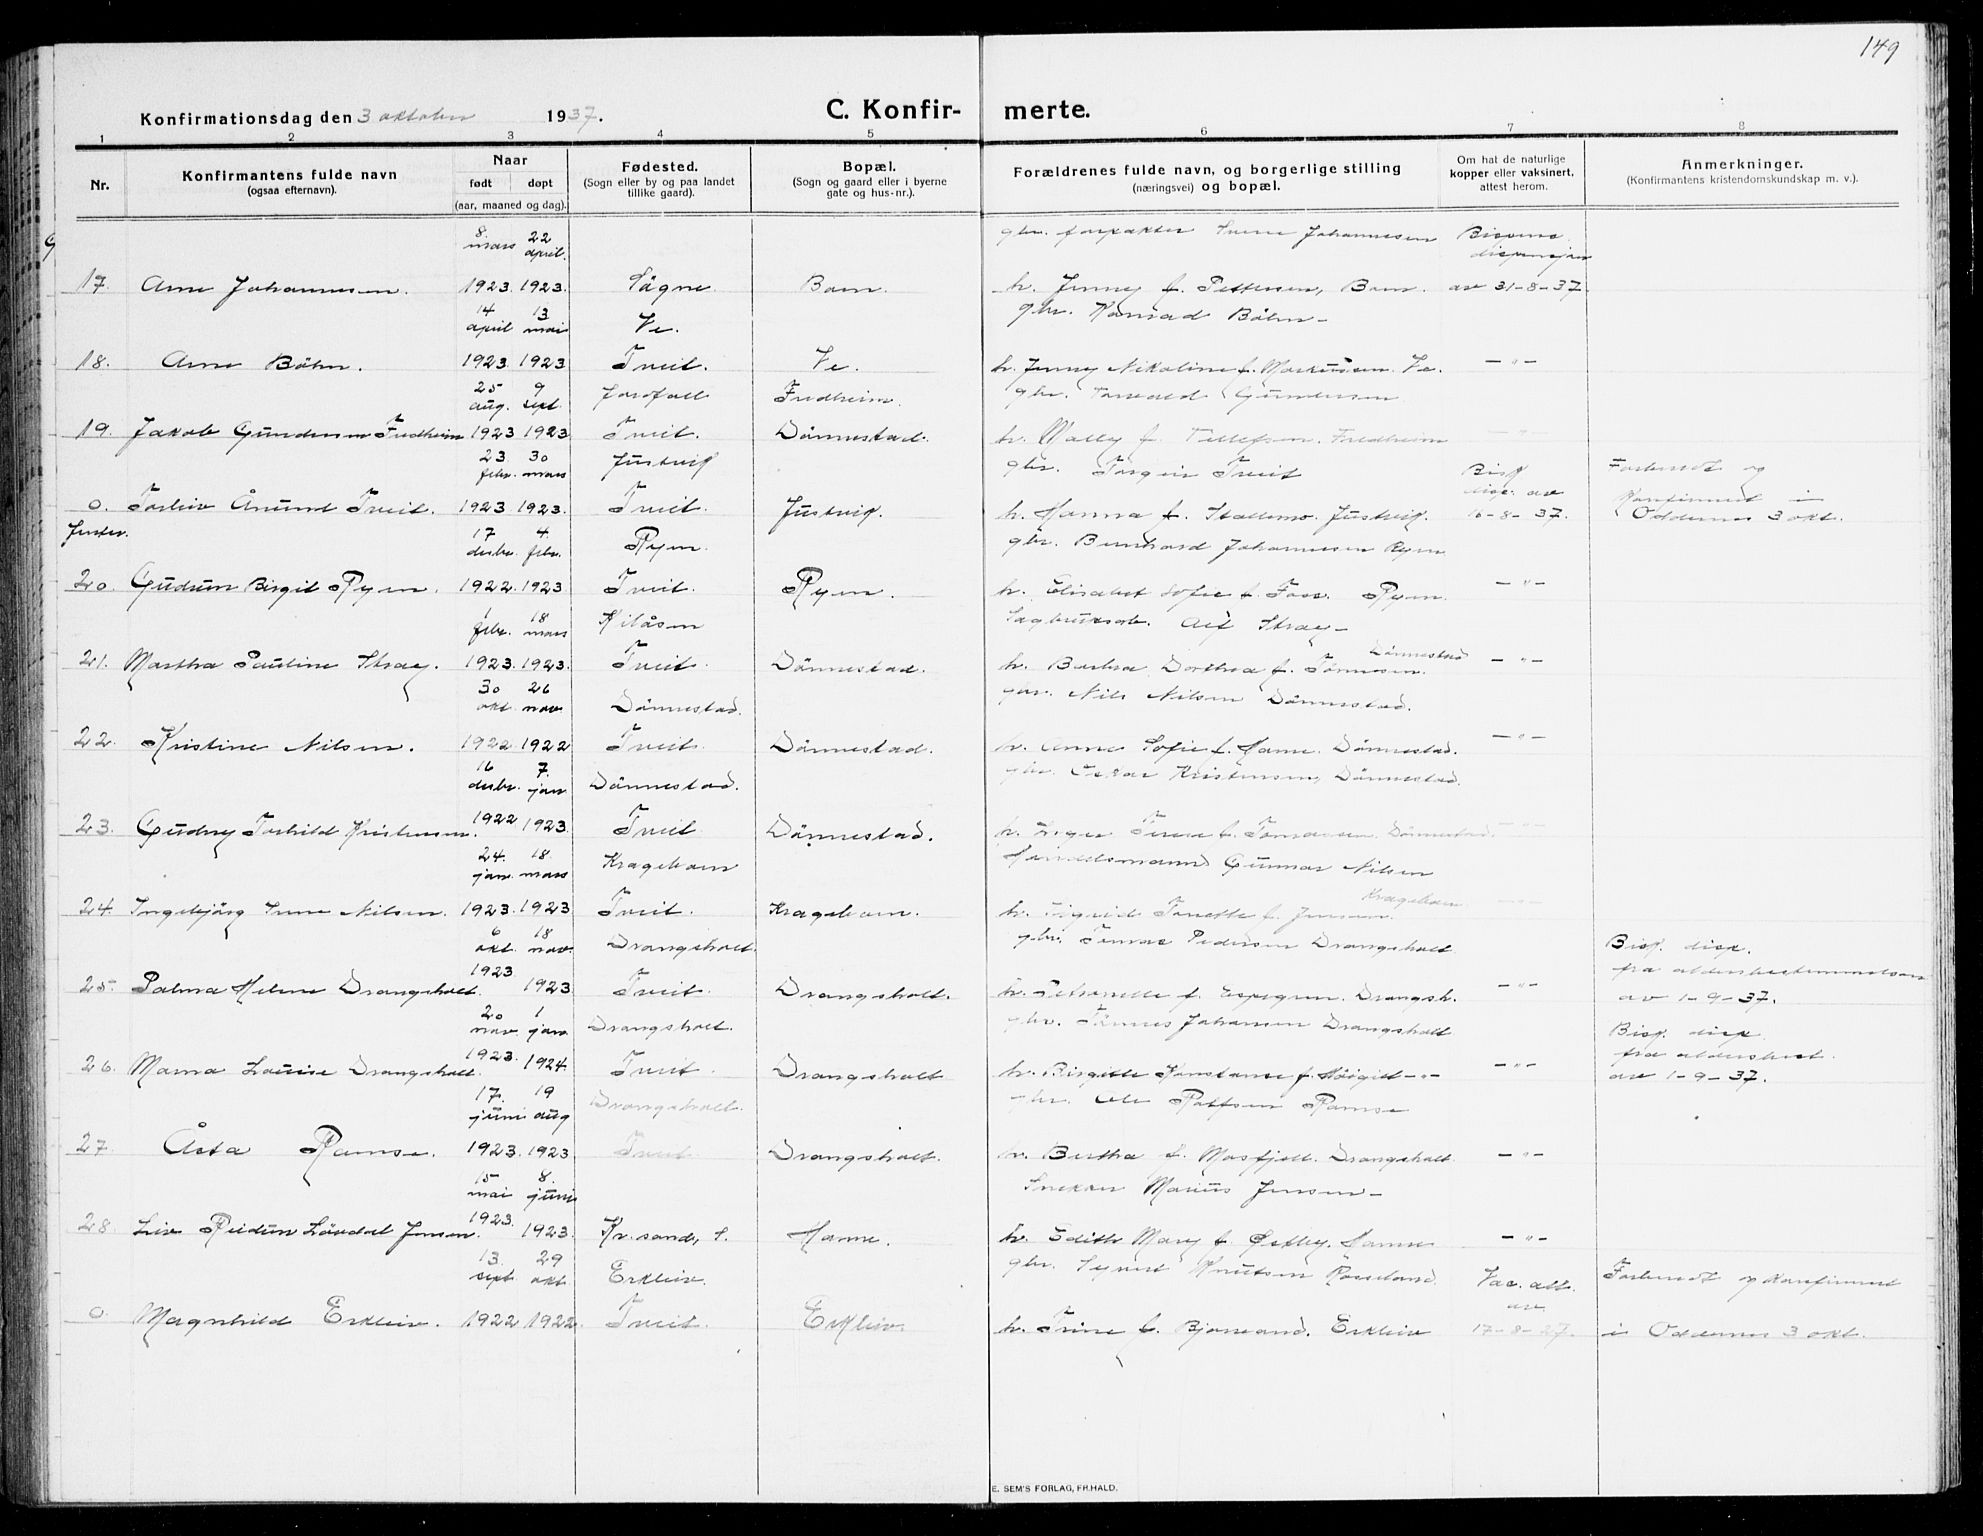 149
Konfirmationsdag den 3 oktober 1937. C. Konfir- merte.
1 2 3 4 5 6 7 8
Nr. Konfirmantens fulde navn (ogsaa efternavn). Naar født døpt (aar, maaned og dag). Fødested. (Sogn eller by og paa landet tillike gaard). Bopæl. (Sogn og gaard eller i byerne gate og hus-nr.). Forældrenes fulde navn, og borgerlige stilling (næringsvei) og bopæl. Om hat de naturlige kopper eller vaksinert, attest herom. Anmerkninger. (Konfirmantens kristendomskundskap m. v.).
8. mars 22 april. gbr. forpakter Johannesen
17. Arne Johannesen. 1923. 1923. Søgne Boen h. Jenny f. Pettersen, Boen. av 31-8-37
14 april 13 mai Ve. gbr. Konrad Bøhn -
18. Arne Bøhn. 1923. 1923 Tveit. Ve. h. Jenny Nikoline f. Markussen. Ve. -"-
25 aug. 9 sept. Fredheim. gbr. Torvald Gundersen
19. Jakob Gundersen Fredheim 1923 1923 Tveit. Dønnestad. h. Wally f. Tellefsen. Fredheim -"-
23 febr. 30 mars Justvik gbr. Torgeir Tveit Bisk. Forberedt og
0. Torleiv Ånund Tveit. 1923 1923. Tveit. Justvik. h. Hanna f. Stallemo. Justvik. disp. av 16-8-37. Konfirmert i Oddernes 3 okt.
17 desbr. 4. febr. Ryen. gbr. Bernhard Johannesen Ryen
20. Gudrun Birgit Ryen. 1922. 1923. Tveit. Ryen. h. Elisabet Sofie f. Foss. Ryen. -"-
1 febr. 18 mars Kilåsen Sagbruksarb. Alf Stray -
21. Martha Pauline Stray. 1923. 1923. Tveit. Dønnestad. h. Barbra Dorthea f. Tønnesen. Dønnestad -"-
30 okt. 26 nov. Dønnestad. gbr. Nils Nilsen Dønnestad.
22. Kristine Nilsen. 1922 1922 Tveit. Dønnestad. h. Anne Sofie f. Hamre. Dønnestad. -"-
16 desbr. 7. jan. Dønnestad. gbr. Oskar Kristensen, Dønnestad.
23. Gudny Torhild Kristensen. 1922 1923. Tveit Dønnestad. h. Inger Tirene f. Tomassen Dønnestad. -"-
24. jan. 18. mars Krageboen Handelsmann Gunnar Nilsen
24. Ingebjørg Irene Nilsen. 1923. 1923 Tveit. Krageboen. h. Sigrid Tonette f. Jensen. Krageboen -"-
6 okt. 18 nov. Drangsholt. gbr. Pedersen Drangsholt Bisk. disp.
25. Palma Helene Drangsholt. 1923 1923 Tveit. Drangsholt. h. Petronelle f. Espegren. Drangsh. -"- fra aldersbestemmelsen av 1-9-37.
20 nov. 1 jan. Drangsholt. gbr. Tønnes Johansen Drangsholt Bisk. disp
26. Mama Louise Drangsholt. 1923. 1924. Tveit. Drangsholt h. Birgitte Konstanse f. -"- -"- fra aldersbest. av 1-9-37.
17. juni 19 aug Drangsholt. gbr. Ole Rolfsen Ramse
27. Åsta Ramse. 1923. 1923 Tveit Drangsholt. h. Bertha f. Mosfjell. Drangsholt -"-
15 mai 8. juni Snekker Marius Jensen -
28. Liv Reidun Løvdal Jensen. 1923. 1923. Kr.sand, S. Hamre. h. Edith Mary f. Østby. Hamre -"-
13. sept. 29 okt. Erkleiv. gbr. Syvert Knutsen Rosseland. Vac. att. av Forberedt og konfirmert
0. Magnhild Erkleiv. 1922 1922. Tveit. Erkleiv. h. Trine f. Erkleiv 17-8-27. i Oddernes 3 okt.
E. SEM'S FORLAG, FR.HALD.